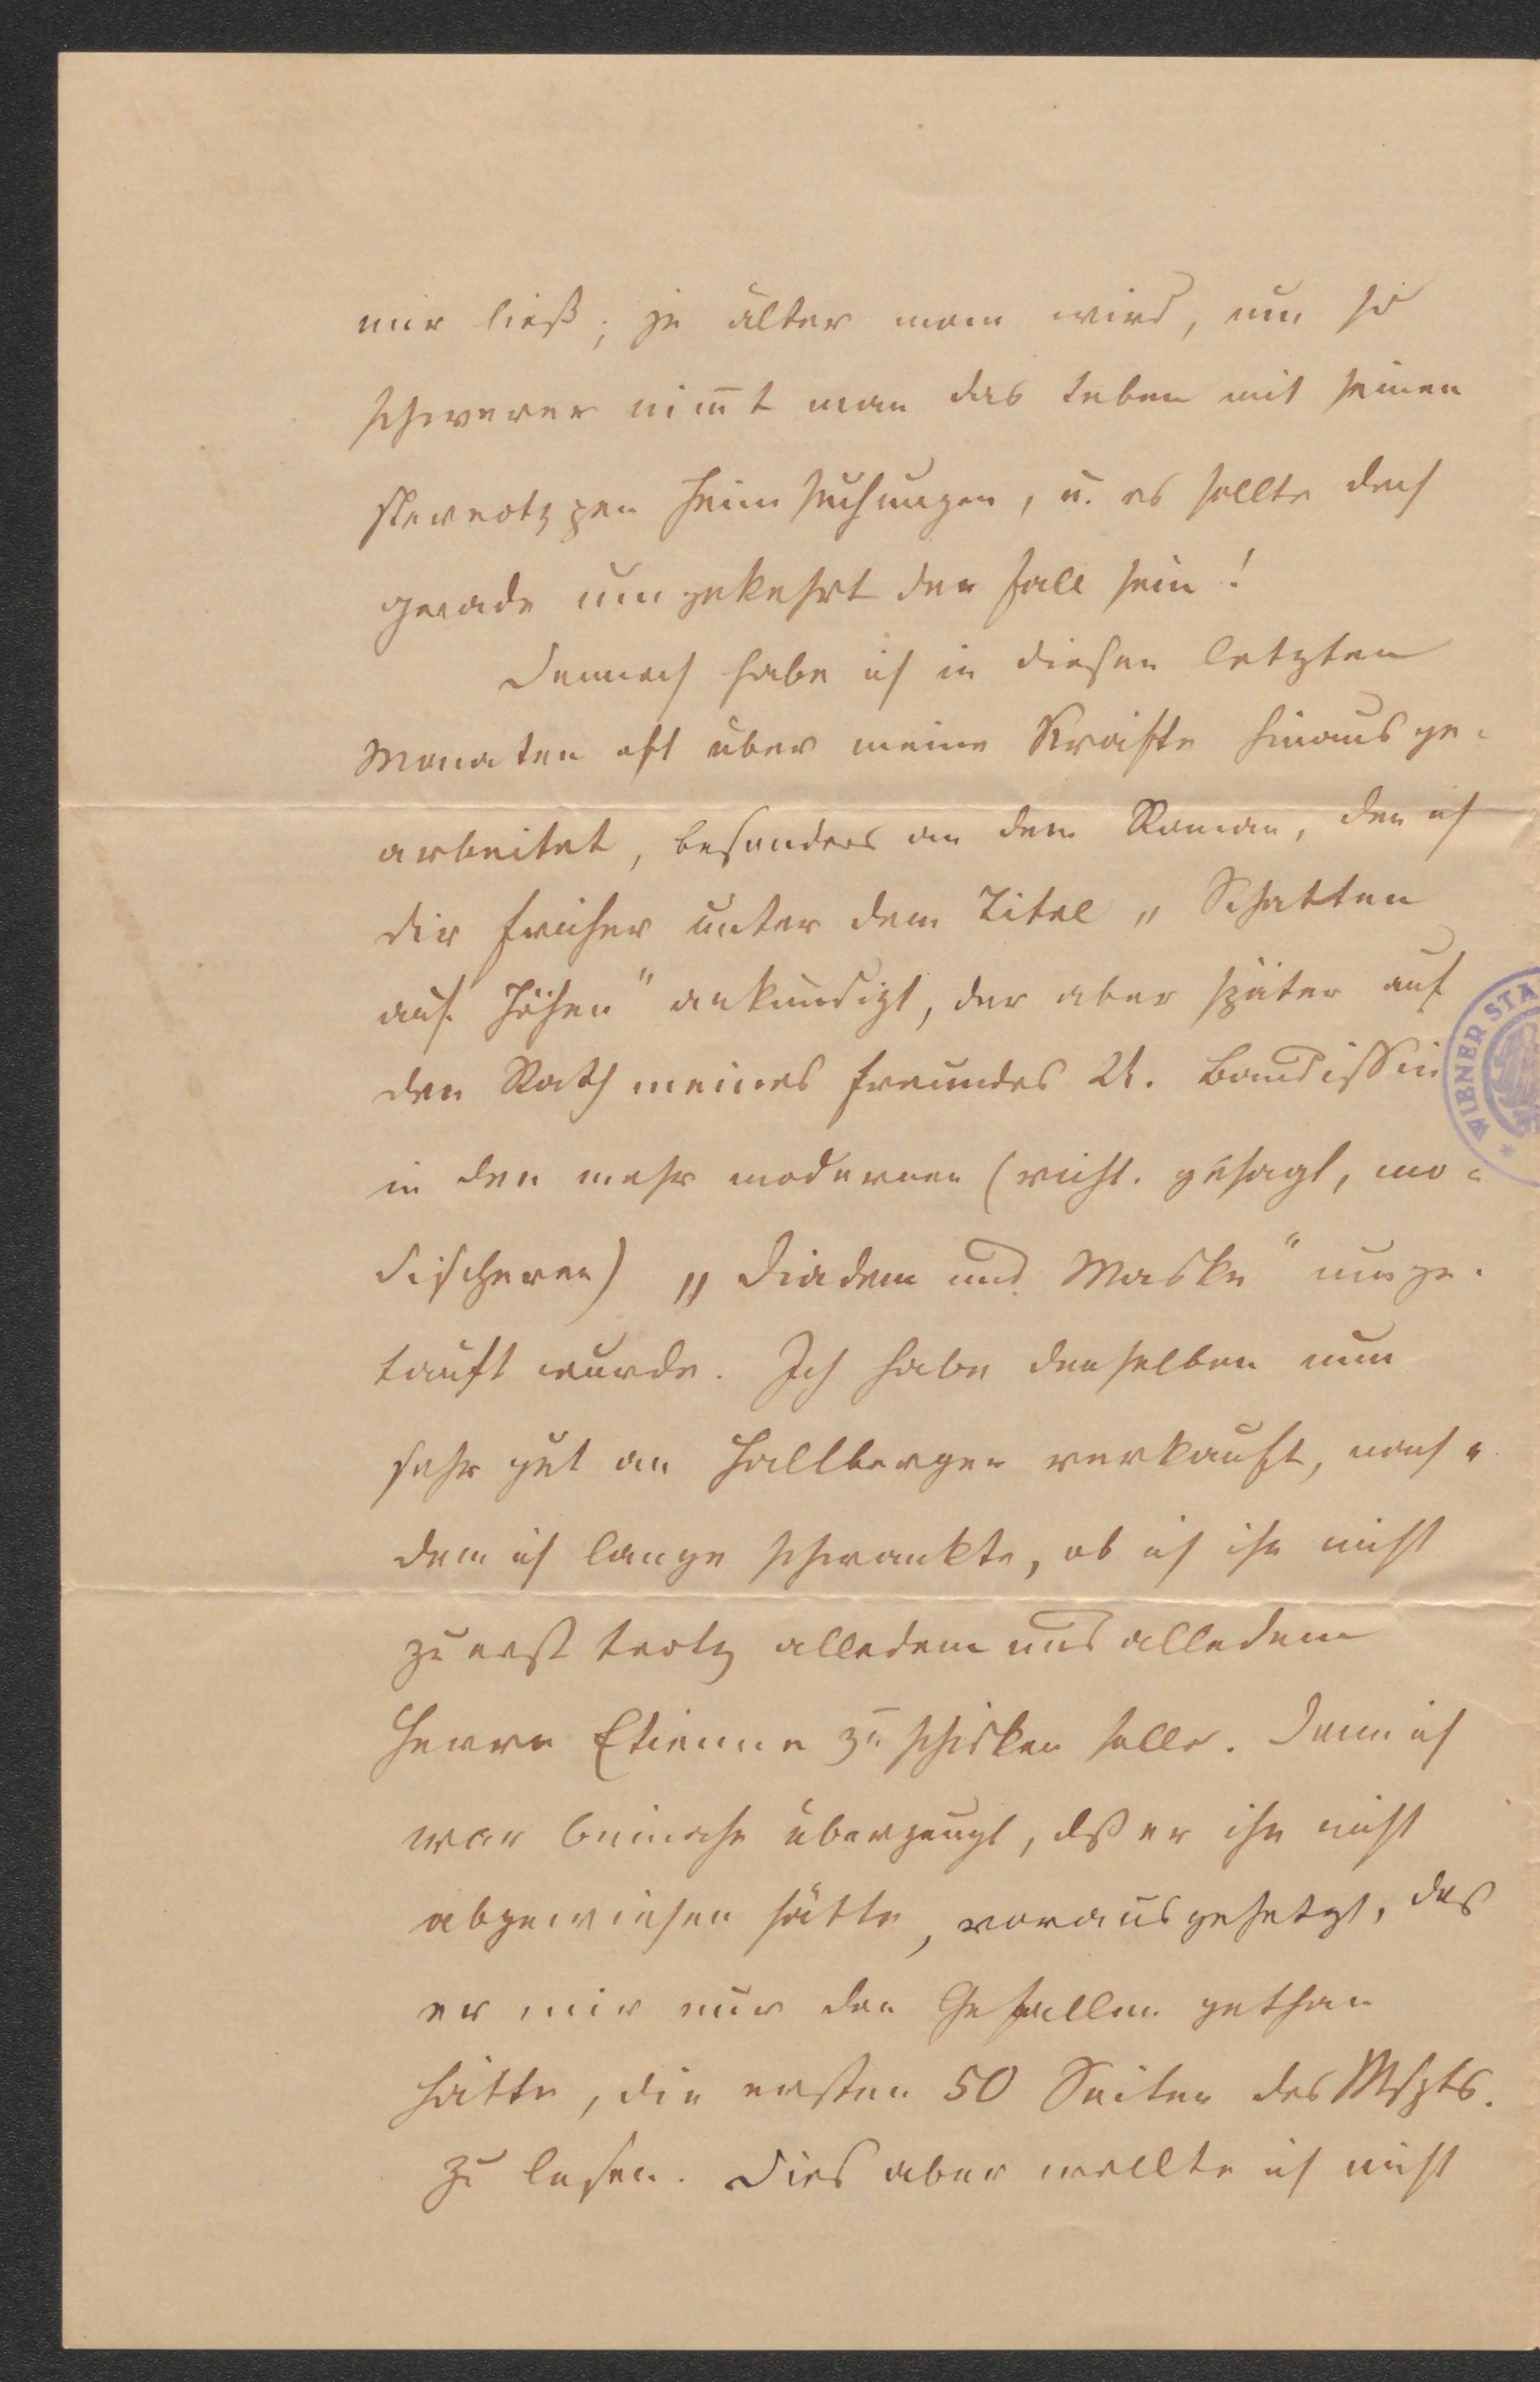 mir ließ; je älter man wird, um so
schwerer nim̅t man das Leben mit seinen
stereotypen Heimsuchungen, u. es sollte doch
gerade umgekehrt der Fall sein!
Dennoch habe ich in diesen letzten
Monaten oft über meine Kräfte hinausge-
arbeitet, besonders an dem Roman, den ich
dir früher unter dem Titel „Schatten
auf Höhen" ankündigt, der aber später auf
den Rath meines Freundes U. Baudissin
in den mehr modernen (richt. gesagt, mo-
discheren) „Diadem und Maske" umge-
tauft wurde. Ich habe denselben nun
sehr gut an Hallberger verkauft, nach-
dem ich lange schwankte, ob ich ihn nicht
zuerst trotz alledem und alledem
Herrn Etienne zu schicken solle. Denn ich
war beinahe überzeugt, dß er ihn nicht
abgewiesen hätte, vorausgesetzt, daß
er mir nur den Gefallen gethan
hätte, die ersten 50 Seiten des Mspts.
zu lesen. Dies aber wollte ich nicht
WIENER STA